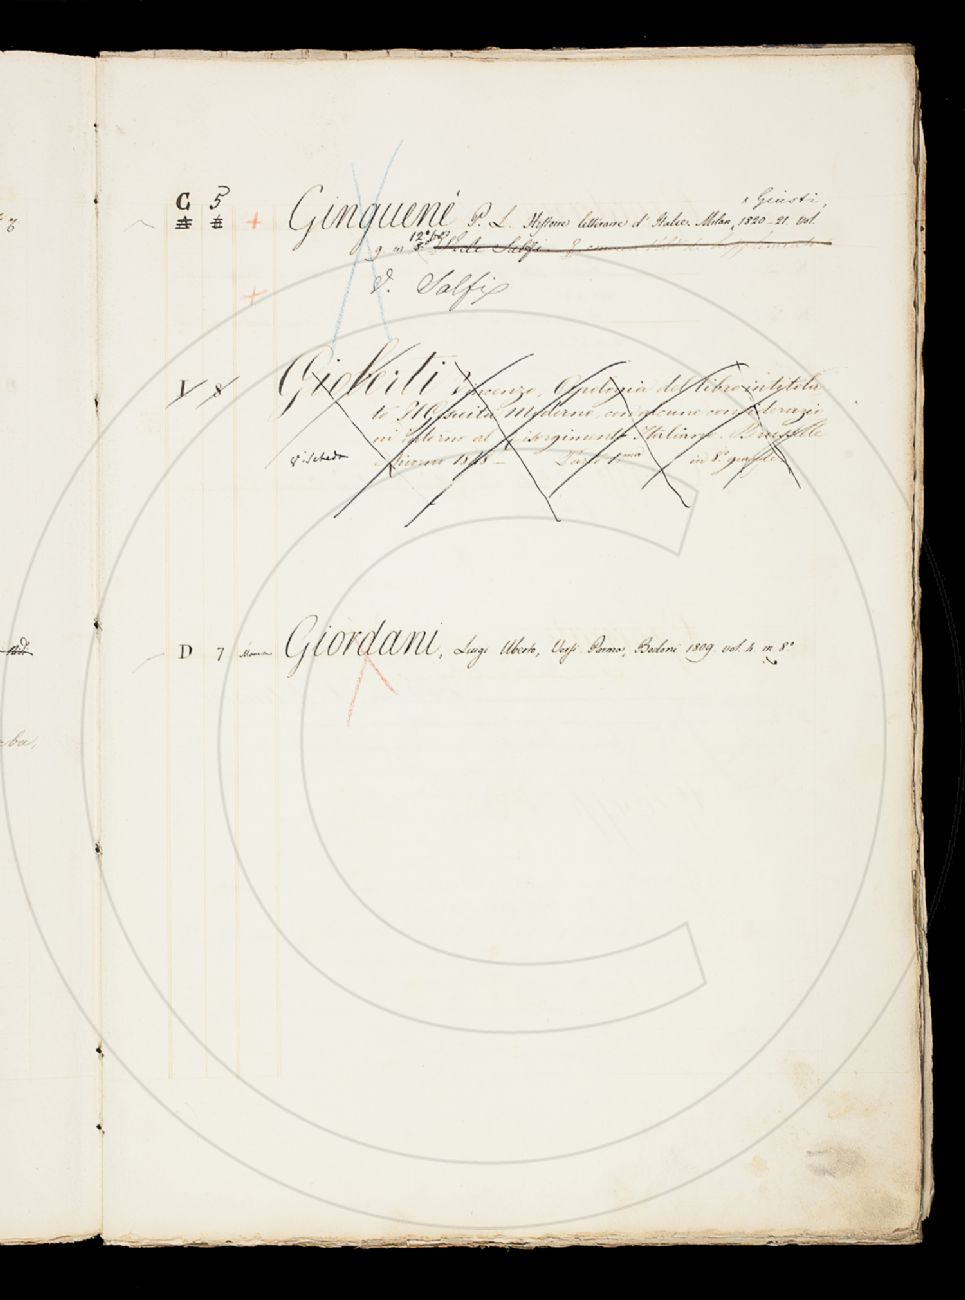 × Giusti,
C 5 + Ginguené P. L. Histoire littéraire d'Italie. Milan, 1820-21 vol.
9 in 12°
+ V. Salfi
V 8 Gioberti Vincenzo, Apologia del libro intitola
to Il Gesuita Moderno, con alcune considerazio
ni intorno al Risorgimento Italiano. Brusselle
V. Scheda e Livorno 1848 – Parte 1.ma in 8° grande
D 7 Giordani, Luigi Uberto, Versi Parma, Bodoni 1809 vol. 4 in 8°
ba,